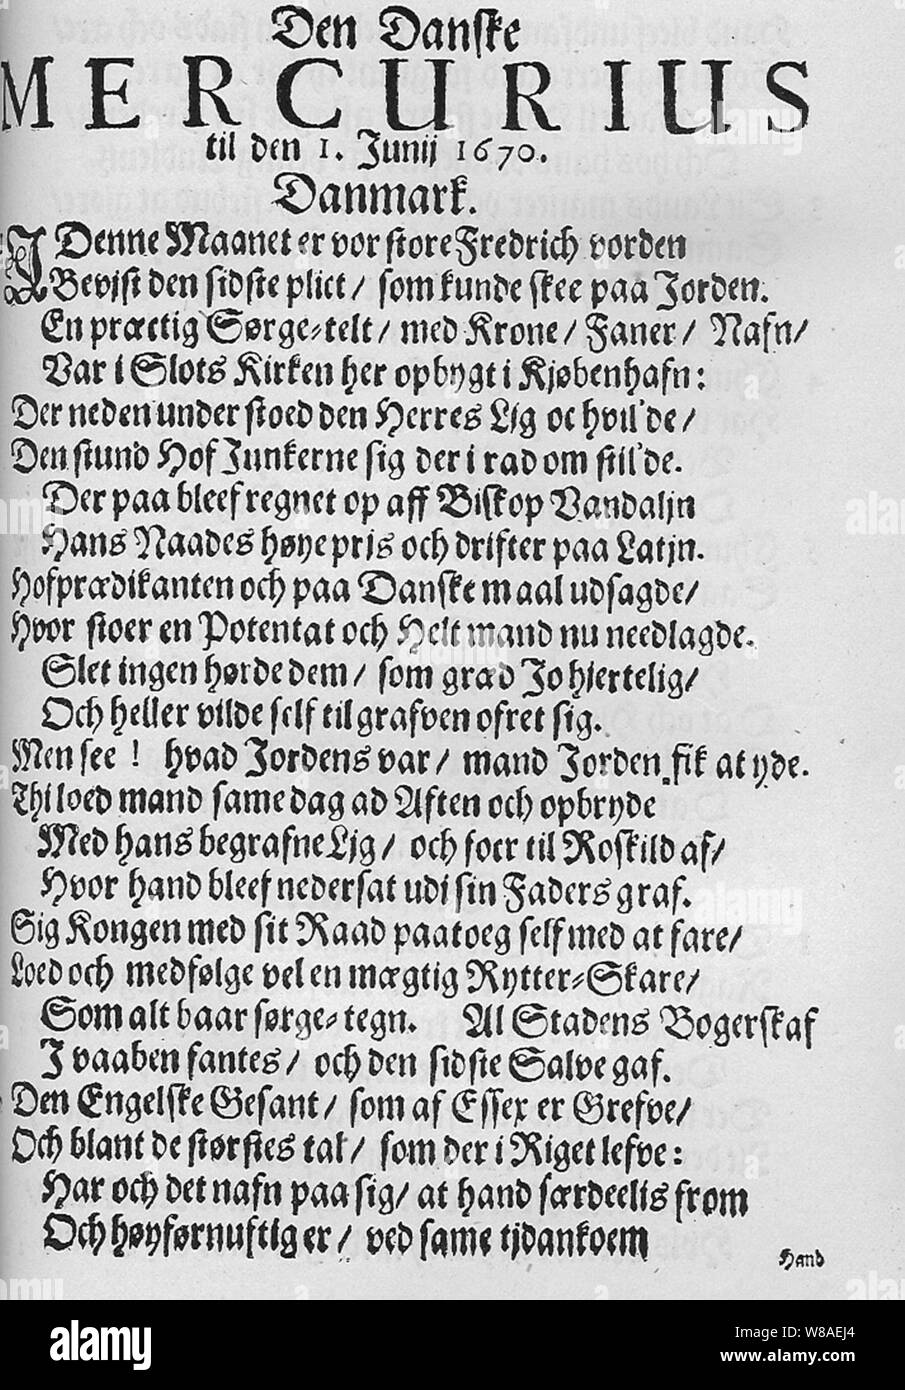 Den Danske
MERCURIUS
til den 1. Junij 1670.
Danmark.
I Denne Maanet er vor store Fredrich vorden
Bevjst den sidste plict / som kunde skee paa Jorden.
En præctig Sørge-telt / med Krone / Faner / Nafn /
Var i Slots Kirken her opbygt i Kjøbenhafn:
Der neden under stoed den Herres Ljg oc hvil'de /
Den stund Hof Junkerne sig der i rad om stil'de.
Der paa bleef regnet op aff Biskop Vandaljn
Hans Naades høye prjs och drifter paa Latjn.
Hofprædikanten och paa Danske maal udsagde /
Hvor stoer en Potentat och Helt mand nu needlagde.
Slet ingen hørde dem / som græd Jo hjertelig /
Och heller vilde self til grafven ofret sig.
Men see ! hvad Jordens var / mand Jorden fik at yde.
Thi loed mand same dag ad Aften och opbryde
Med hans begrafne Ljg / och foer til Roskild af /
Hvor hand bleef nedersat udi sin Faders graf.
Sig Kongen med sit Raad paatoeg self med at fare /
Loed och medfølge vel en mægtig Rytter-Skare /
Som alt baar sørge-tegn. Al Stadens Bogerskaf
I vaaben fantes / och den sidste Salve gaf.
Den Engelske Gesant / som af Essex er Grefve /
Och blant de størstes tal / som der i Riget lefve :
Har och det nafn paa sig / at hand særdeelis from
Och høyførnuftig er / ved same tjd ankoem
Hand
alamy
www.alamy.com
Image ID: W8AEJ4